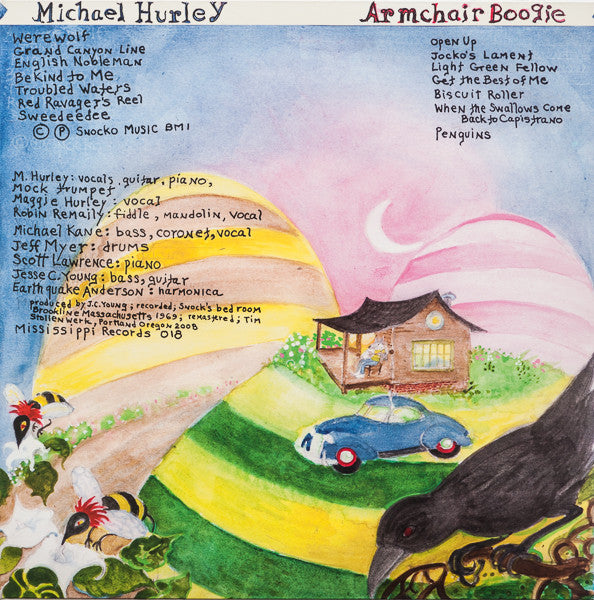 Michael Hurley
Armchair Boogie
Werewolf
Grand Canyon Line
English Nobleman
Be Kind to Me
Troubled Waters
Red Ravager's Reel
Sweedeedee
© ℗ Snocko Music BMI
Open Up
Jocko's Lament
Light Green Fellow
Get the Best of Me
Biscuit Roller
When the Swallows Come
Back to Capistrano
Penguins
M. Hurley: vocals, guitar, piano,
Mock trumpet
Maggie Hurley: vocal
Robin Remaily: fiddle, mandolin, vocal
Michael Kane: bass, coronet, vocal
Jeff Myer: drums
Scott Lawrence: piano
Jesse C. Young: bass, guitar
Earthquake Anderson: harmonica
produced by J.C. Young; recorded, Snock's bed room
Brookline Massachusetts 1969; remastered; Tim
Stollenwerk, Portland Oregon 2008
Mississippi Records 018